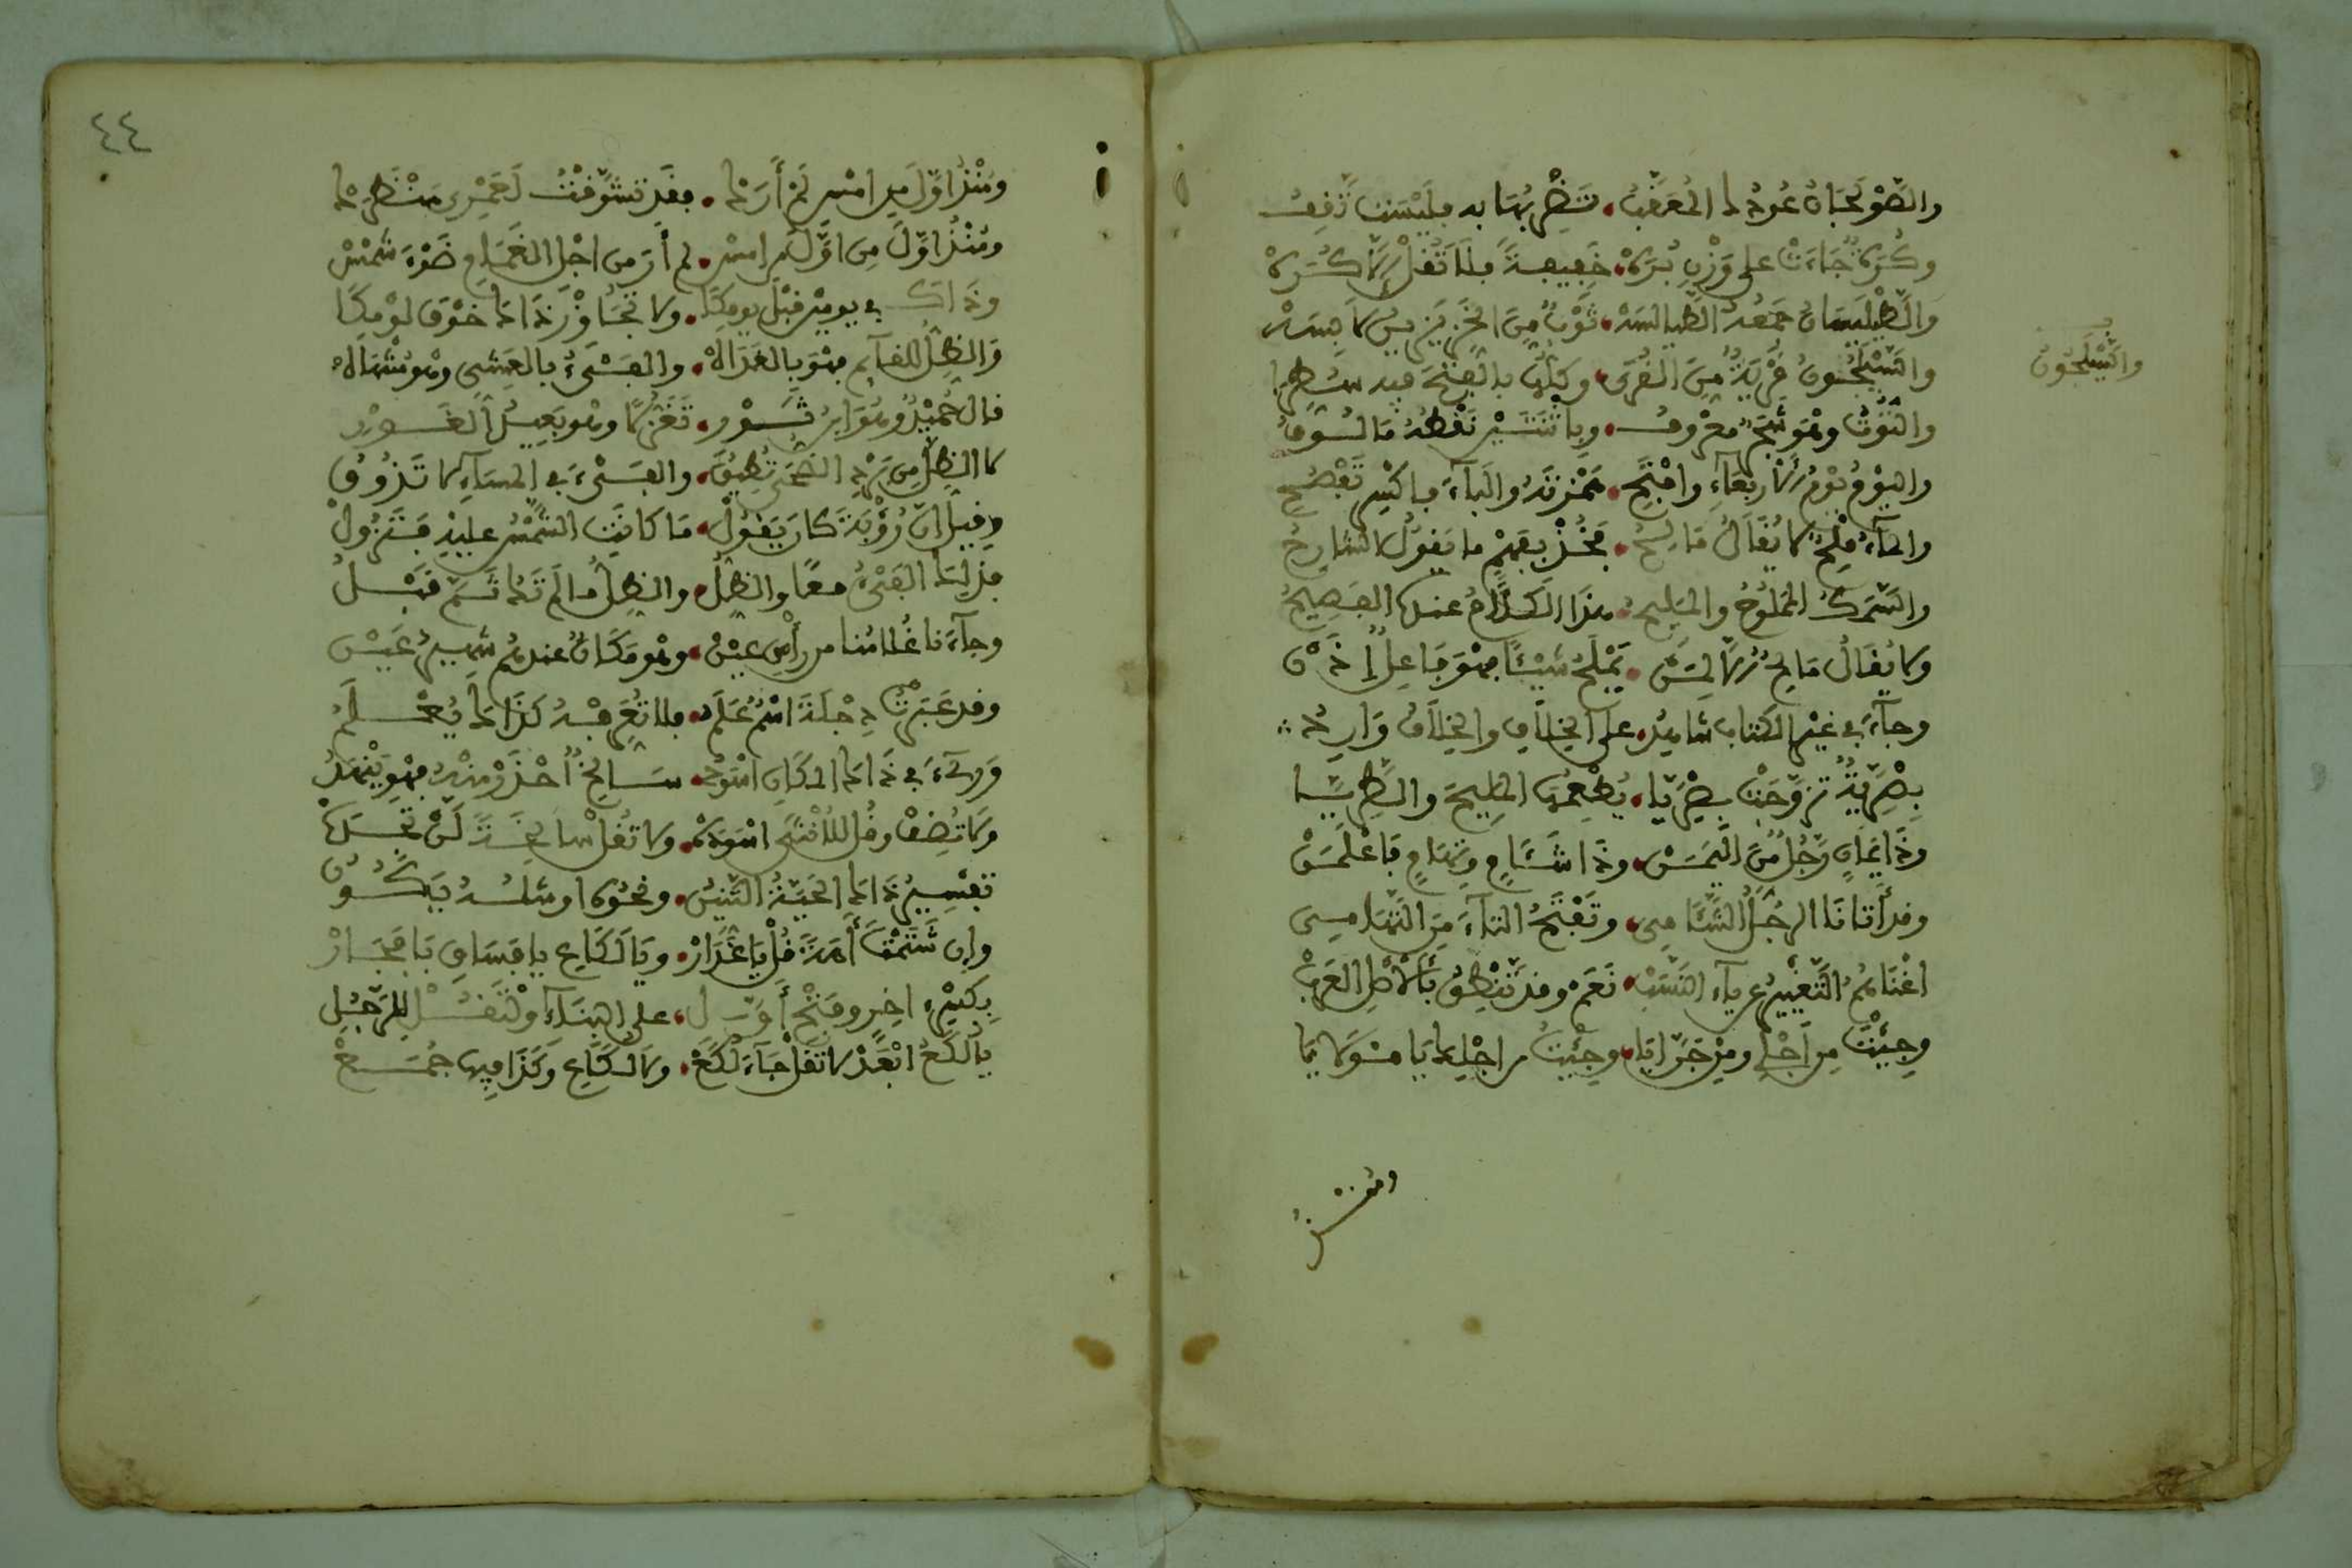 والصَّوْلَجَانُ عُودُهَا المُعَقَّفُ • تَضْرِبُهَا به فليْسَت تَقِفُ
وكُرَةٌ جَاءَتْ على وَزْنِ بُرَهْ • خَفِيفةً فلا تَقُلْ لا كُرَهْ
وَالطَّيْلَسَانُ جَمْعُهُ الطَّيالِسَهْ • ثَوْبٌ مِنَ الخَزِّ
والسَّيْلَحُونُ قَرْيَةٌ مِنَ القُرَى • وكلُّها بالفتحَ فيه سُطِرَا
والسَّيْلَحُونُ
والتُّوتُ وهْوَ شَجَرٌ معْرُوفُ •
واليَوْمُ يَوْمُ الأَرْبِعَاءِ وافْتَحِ • هَمْزَتَهُ والبَاءَ فاكْسِرْ تُفْصِحِ
والماءُ مِلْحٌ لا يُقَالُ مَالِحُ • فَخُذْ بفَهْمٍ ما يَقولُ الشارِحُ
والسَّمَكُ المَمْلُوحُ والمَلِيحُ • هذا الكَلامُ عندنا الفَصِيحُ
ولا يُقَالُ مَالِحٌ إلا لِمَنْ • يَمْلَحُ شَيْئًا فهْوَ فَاعِلٌ إذَنْ
وجاءَ في غيْرِ الكتاب شاهِدُ • على الخِلافِ والخِلافُ وَارِدُ
بِصْرِيَّةٌ تزوَّجَتْ بِصْرِيَّا • يُطْعِمُها المَلِيحَ والطَّرِيَّا
وذَا يَمَانٍ رَجُلٌ مِنَ اليَمَنْ • وذَا شَآمٍ وتِهَامٍ فَاعْلَمَنْ
وقد أَتانَا الرجُلُ الشَّآمِي • وتَفْتَحُ التاءَ مِنَ التَّهامِي
اغْنَاهُمُ التَّغْيِيرُ عن ياءِ النَّسَبْ • نَعَمْ وقد تَنْطِقُ بالأصْلِ العَرَبْ
وجِئْتَ مِن أَجْلِي ومِنْ جَرَّائِيَا • وجِئْتُ من اجْلِكَ يا مَوْلائِيَا
ومُنْذُ
٤٤
ومُنْذُ اوَّلَ مِن امْسِ لَمْ أرَهَا • فقَد تشَوَّقْتُ لَعَمْرِي مَنْظَرَهَا
ومُنْذُ اوَّلَ مِن اوَّلَ مِن امْسِ • لم أرَ من اجْلِ الغَمَامِ ضَوْءَ شَمْسْ
وذاكَ في يومَيْنِ قبْلَ يومِكَا • ولا تُجَاوِزْ ذاكَ خَوْفَ لَوْمِكَا
والظِّلُّ للقائم فهْوَ بالغَدَاهْ • والفَيْءُ بالعَشِي وهْو مُنْتَهَاهْ
قال حُمَيْدٌ وهُوَ ابنُ ثَوْرِ •
لا الظلَّ مِن بَرْدِ الضُّحَى تُطِيقُ • والفَيْءَ في المَسَاءِ لا تَذُوقُ
وقيلَ انَّ رُؤْبَةً كانَ يَقولْ • مَا كانَتِ الشَّمْسُ عليْهِ فتَزُولْ
فذلِكَ الفَيْءُ معًا والظِّلُّ • والظِّلُّ مَا لَمْ تَكُ ثَمَّ قَبْلُ
وجاءَنا غُلامُنا من رأْسِ عيْنْ • وهْو مَكَانٌ عندهُم شَهِيرُ عَيْنْ
وقد عَبَرْتُ دِجْلَةَ اسْمٌ عَلَمُ • فلا تُعَرِّفْهُ كَذَاكَ يُعْلَمُ
وجاءَ في ذاكَ المكانِ اسْوَدُ • سَالِخٌ احْذَرْ مِنْهُ فهْوَ يَنْهَدُ
ولا تُضِفْ وقُل للأنْثَى اسْوَدَهْ • ولا تَقُلْ سالِخَةً
تفسِيرُ ذاكَ الحَيَّةُ التِّنِّينُ • ونحوُه اوْ مثلُه يَكُونُ
وإن شَتَمْتَ أَمَةً قُلْ يا غَدَارْ • ويَا لَكَاعِ يا فسَاقِ يَا فَجَارْ
بِكَسْرِ اخِرٍ وفَتْحِ أوَّلِ • على البِنَاءِ ولْتَقُلْ لِلرَّجُلِ
يالُكَعُ ابْعُدْ لا تَقُلْ جَاءَ لُكَعْ • ولا لَكَاعِ وكَذَا فيها جُمَعْ